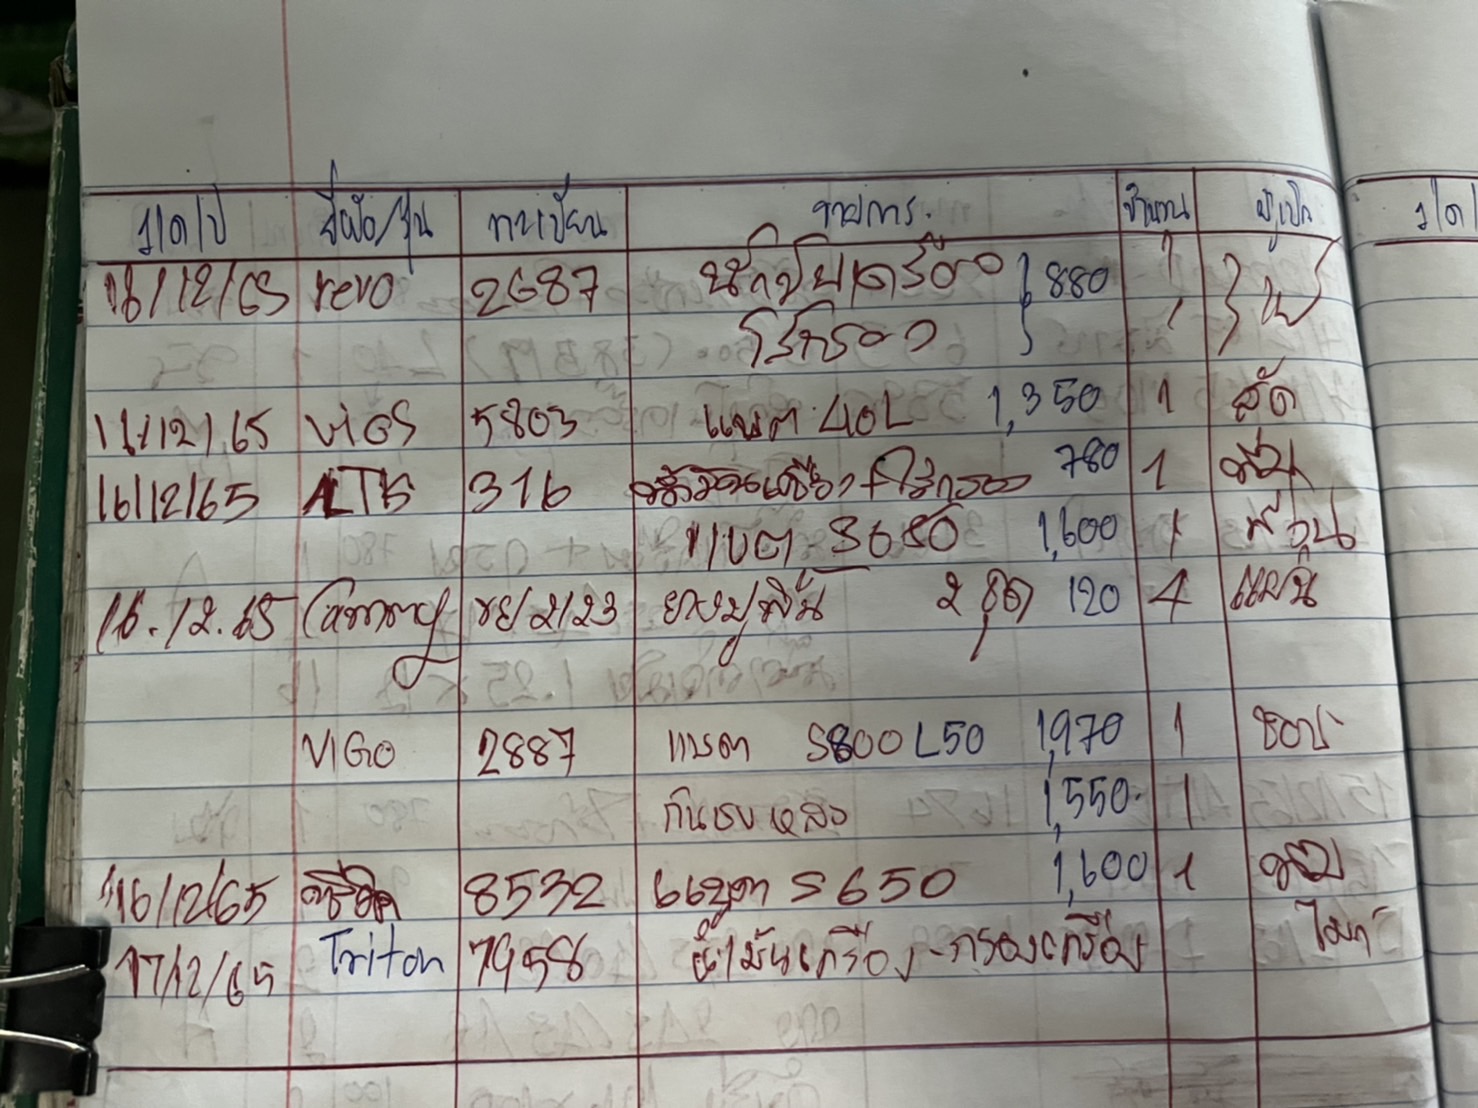 ว/ด/ป ยี่ห้อ/รุ่น ทะเบียน รายการ. จำนวน ผู้เบิก ว/ด/
16/12/65 revo 2687 น้ำมันเครื่อง 880 1
ไส้กรอง
16/12/65 ViGO 5803 แบต 40L 1,350 1
16/12/65 ALTIS 316 น้ำมันเครื่อง + ไส้กรอง 780 1
แบต S650 1,600 1
16.12.65 Camry 2123 2 ชุด 120 4
ViGO 2887 แบต S800 L50 1,970 1
กันชนหลัง 1,550. 1
16/12/65 8532 แบต S 650 1,600 1
17/12/65 Triton 7958 น้ำมันเครื่อง - กรองเครื่อง